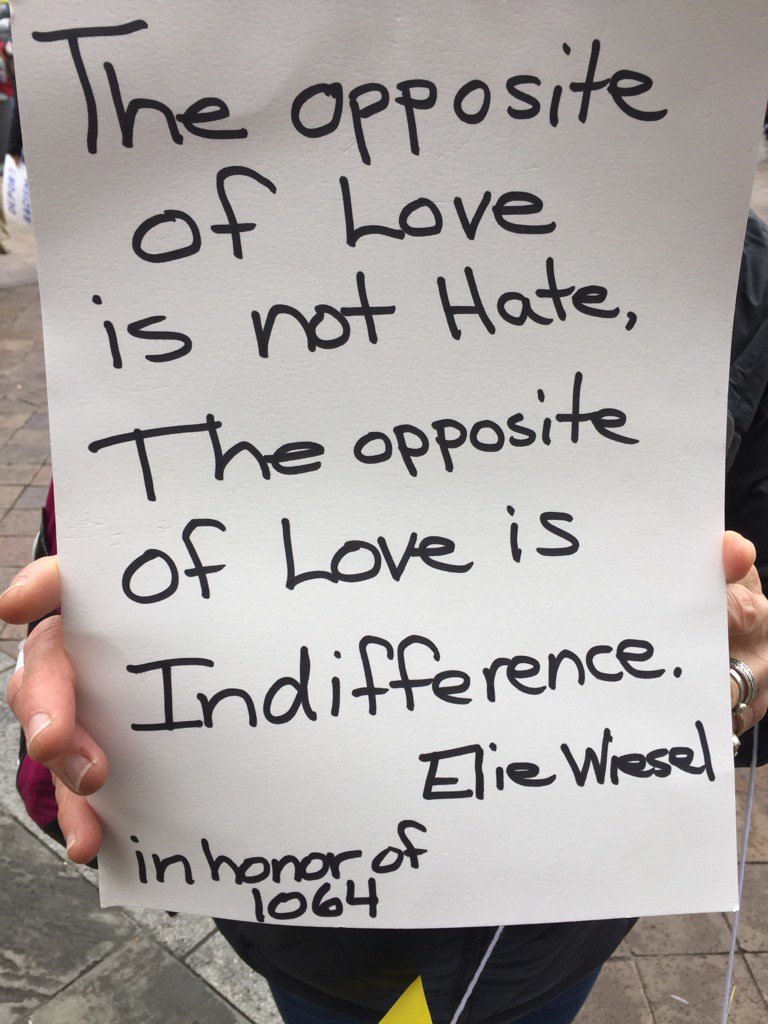 The opposite
of Love
is not Hate,
The opposite
of Love is
Indifference.
Elie Wiesel
in honor of
1064